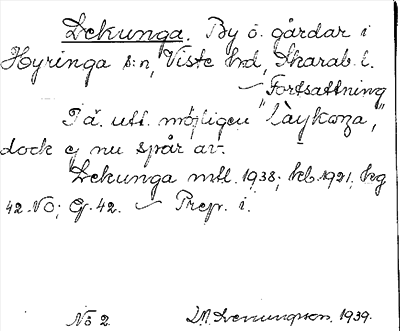 Lekunga. By o. gårdar i
Hyringa s:n, Viste hd, Skarab. l.
— Fortsättning
På. utt. möjligen "làykoṉa",
dock ej nu spår av.
Lekunga mtl. 1938; kb. 1921, kg
42. NO; G. 42. — Prep. i.
No 2. 1939.